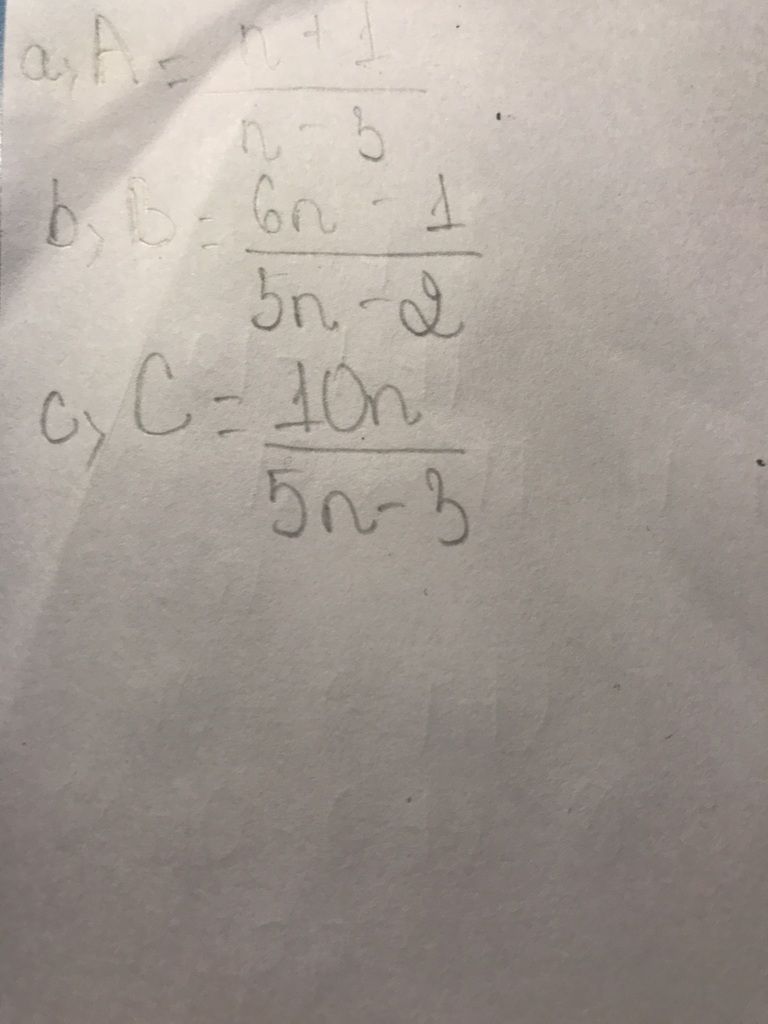 a, A = n + 1 / n - 3
b, B = 6n - 1 / 5n - 2
c, C = 10n / 5n - 3